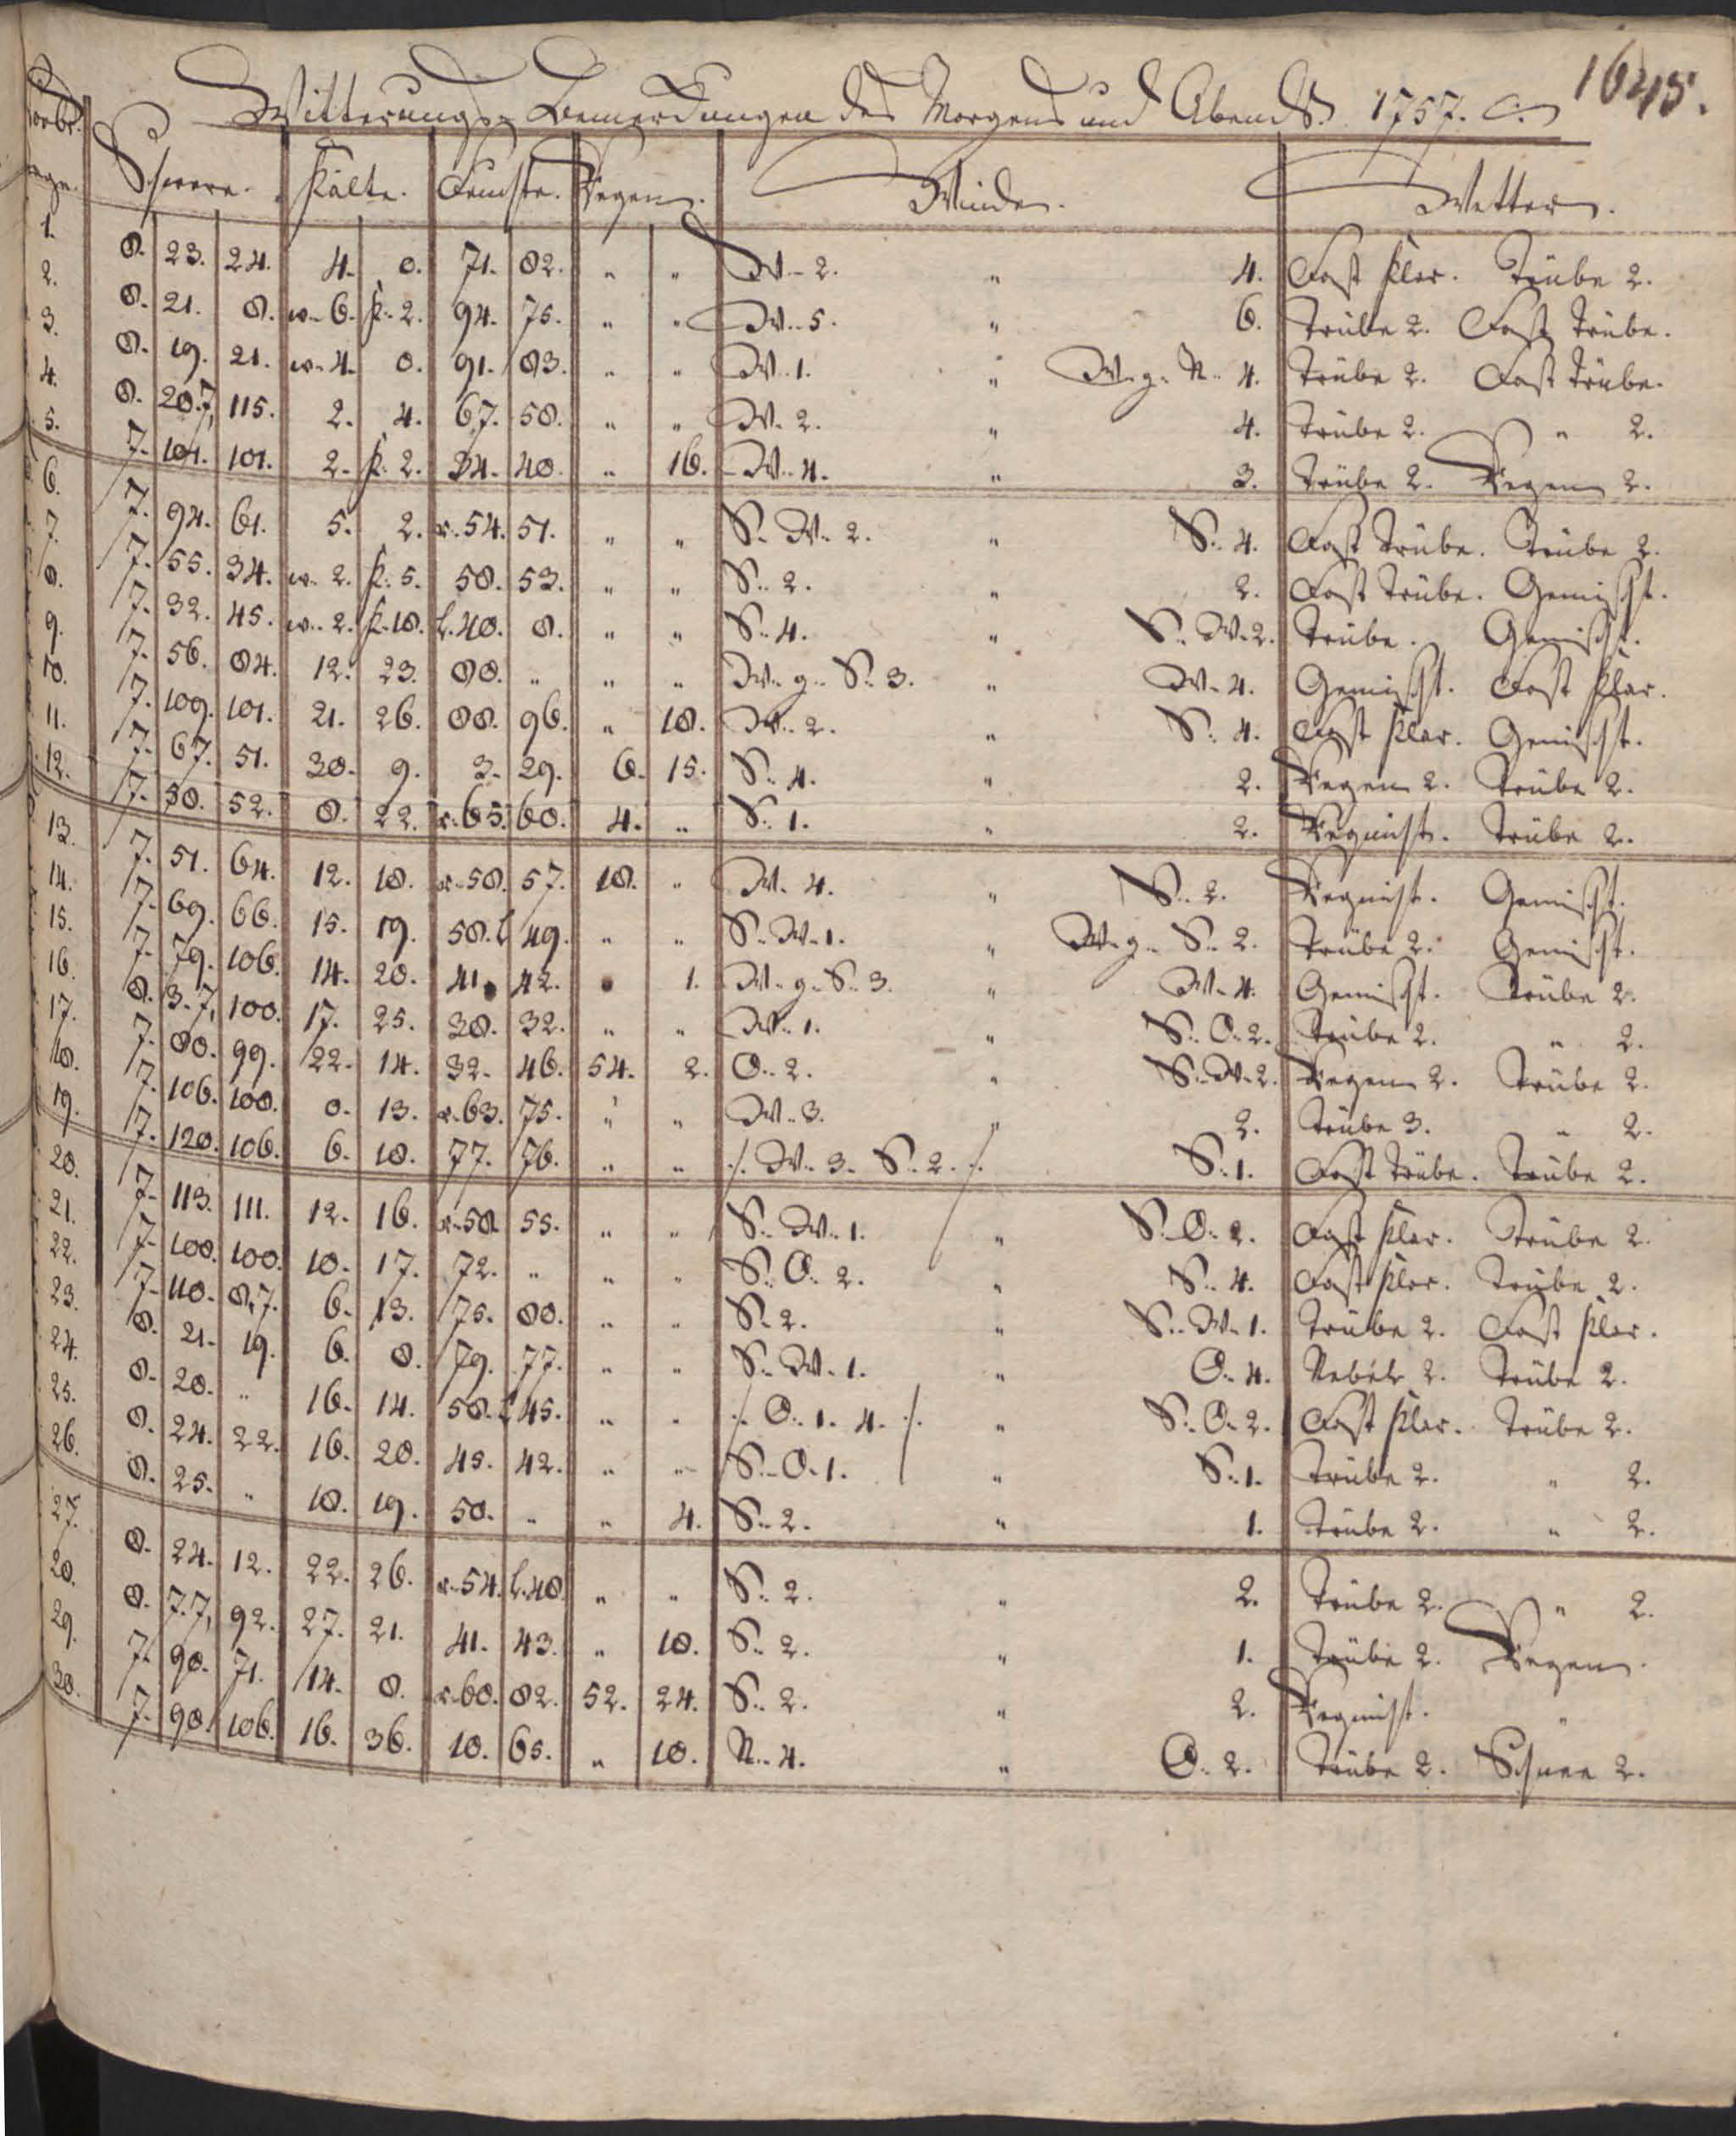 1645.
Witterungs-Bemerckungen des Morgens und Abends. 1757.
Schwere. Kälte. Feuchte. Regen. Winde. Wetter.
1. 8. 23. 24. 4. 0. 71. 82. " " W. 2. " 4. Fast klar. Trübe 2.
2. 8. 21. 8. w. 6. k. 2. 94. 75. " " W. 5. " 6. Trübe 2. Fast trübe.
3. 8. 19. 21. w. 4. 0. 91. 83. " " W. 1. " W. g. N. 4. Trübe 2. Fast trübe.
4. 8. 20. 7, 115. 2. 4. 67. 58. " " W. 2. " 4. Trübe 2. " 2.
5. 7. 101. 101. 2. k. 2. 34. 40. " 16. W. 4. " 3. Trübe 2. Regen 2.
6. 7. 94. 61. 5. 2. r. 54. 51. " " S. W. 2. " S. 4. Fast trübe. Trübe 2.
7. 7. 55. 34. w. 2. k. 5. 50. 53. " " S. 2. " 2. Fast trübe. Gemischt.
8. 7. 32. 45. w. 2. k. 18. l. 40. 8. " " S. 4. " S. W. 2. Trübe. Gemischt.
9. 7. 56. 84. 12. 23. 80. " " " W. g. S. 3. " W. 4. Gemischt. Fast klar.
10. 7. 109. 101. 21. 26. 88. 96. " 18. W. 2. " S. 4. Fast klar. Gemischt.
11. 7. 67. 51. 30. 9. 3. 29. 6. 15. S. 4. " 2. Regen 2. Trübe 2.
12. 7. 50. 52. 8. 22. r. 65. 60. 4. " S. 1. " 2. Regnicht. Trübe 2.
13. 7. 51. 64. 12. 18. r. 58. 57. 18. " W. 4. " S. 2. Regnicht. Gemischt.
14. 7. 69. 66. 15. 19. 50. l 49. " " S. W. 1. " W. g. S. 2. Trübe 2. Gemischt.
15. 7. 79. 106. 14. 20. 41. 42. " 1. W. g. S. 3. " W. 4. Gemischt. Trübe 2.
16. 8. 3. 7, 100. 17. 25. 38. 32. " " W. 1. " S. O. 2. Trübe 2. " 2.
17. 7. 80. 99. 22. 14. 32. 46. 54. 2. O. 2. " S. W. 2. Regen 2. Trübe 2.
18. 7. 106. 108. 0. 13. r. 63. 75. " " W. 3. " 2. Trübe 3. " 2.
19. 7. 120. 106. 6. 18. 77. 76. " " ./. W. 3. S. 2. ./. S. 1. Fast trübe. Trübe 2.
20. 7. 113. 111. 12. 16. r. 58. 55. " " S. W. 1. " S. O. 2. Fast klar. Trübe 2.
21. 7. 100. 100. 10. 17. 72. " " " S. O. 2. " S. 4. Fast klar. Trübe 2.
22. 7. 110. 8. 7. 6. 13. 75. 80. " " S. 2. " S. W. 1. Trübe 2. Fast klar.
23. 8. 21. 19. 6. 8. 79. 77. " " S. W. 1. " O. 4. Nebel 2. Trübe 2.
24. 8. 20. " 16. 14. 50. l 45. " " ./. O. 1. 4. ./. " S. O. 2. Fast klar. Trübe 2.
25. 8. 24. 22. 16. 20. 45. 42. " " S. O. 1. " S. 1. Trübe 2. " 2.
26. 8. 25. " 18. 19. 50. " " 4. S. 2. " 1. Trübe 2. " 2.
27. 8. 24. 12. 22. 26. r. 54. l. 48. " " S. 2. " 2. Trübe 2. " 2.
28. 8. 7. 7, 92. 27. 21. 41. 43. " 18. S. 2. " 1. Trübe 2. Regen.
29. 7. 90. 71. 14. 8. r. 60. 82. 52. 24. S. 2. " 2. Regnicht. "
30. 7. 98. 106. 16. 36. 10. 65. " 10. N. 4. " O. 2. Trübe 2. Schnee 2.